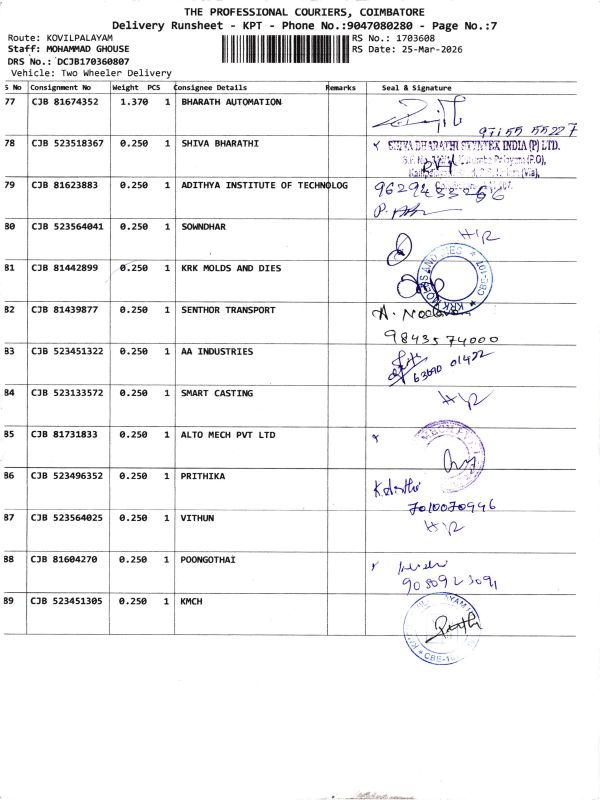 THE PROFESSIONAL COURIERS, COIMBATORE
Delivery Runsheet - KPT - Phone No.:9047080280 - Page No.:7
Route: KOVILPALAYAM RS No.: 1703608
Staff: MOHAMMAD GHOUSE RS Date: 25-Mar-2026
DRS No.: DCJB170360807
Vehicle: Two Wheeler Delivery
S No Consignment No Weight PCS Consignee Details Remarks Seal & Signature
77 CJB 81674352 1.370 1 BHARATH AUTOMATION
97155 55227
78 CJB 523518367 0.250 1 SHIVA BHARATHI SHIVA BHARATHI SYNTEX INDIA (P) LTD.
79 CJB 81623883 0.250 1 ADITHYA INSTITUTE OF TECHNOLOG
80 CJB 523564041 0.250 1 SOWNDHAR H/R
81 CJB 81442899 0.250 1 KRK MOLDS AND DIES KRK MOLDS AND DIES
82 CJB 81439877 0.250 1 SENTHOR TRANSPORT
9843574000
83 CJB 523451322 0.250 1 AA INDUSTRIES
63690 01422
84 CJB 523133572 0.250 1 SMART CASTING H/R
85 CJB 81731833 0.250 1 ALTO MECH PVT LTD
86 CJB 523496352 0.250 1 PRITHIKA
7010070996
87 CJB 523564025 0.250 1 VITHUN H/R
88 CJB 81604270 0.250 1 POONGOTHAI
9080923091
89 CJB 523451305 0.250 1 KMCH